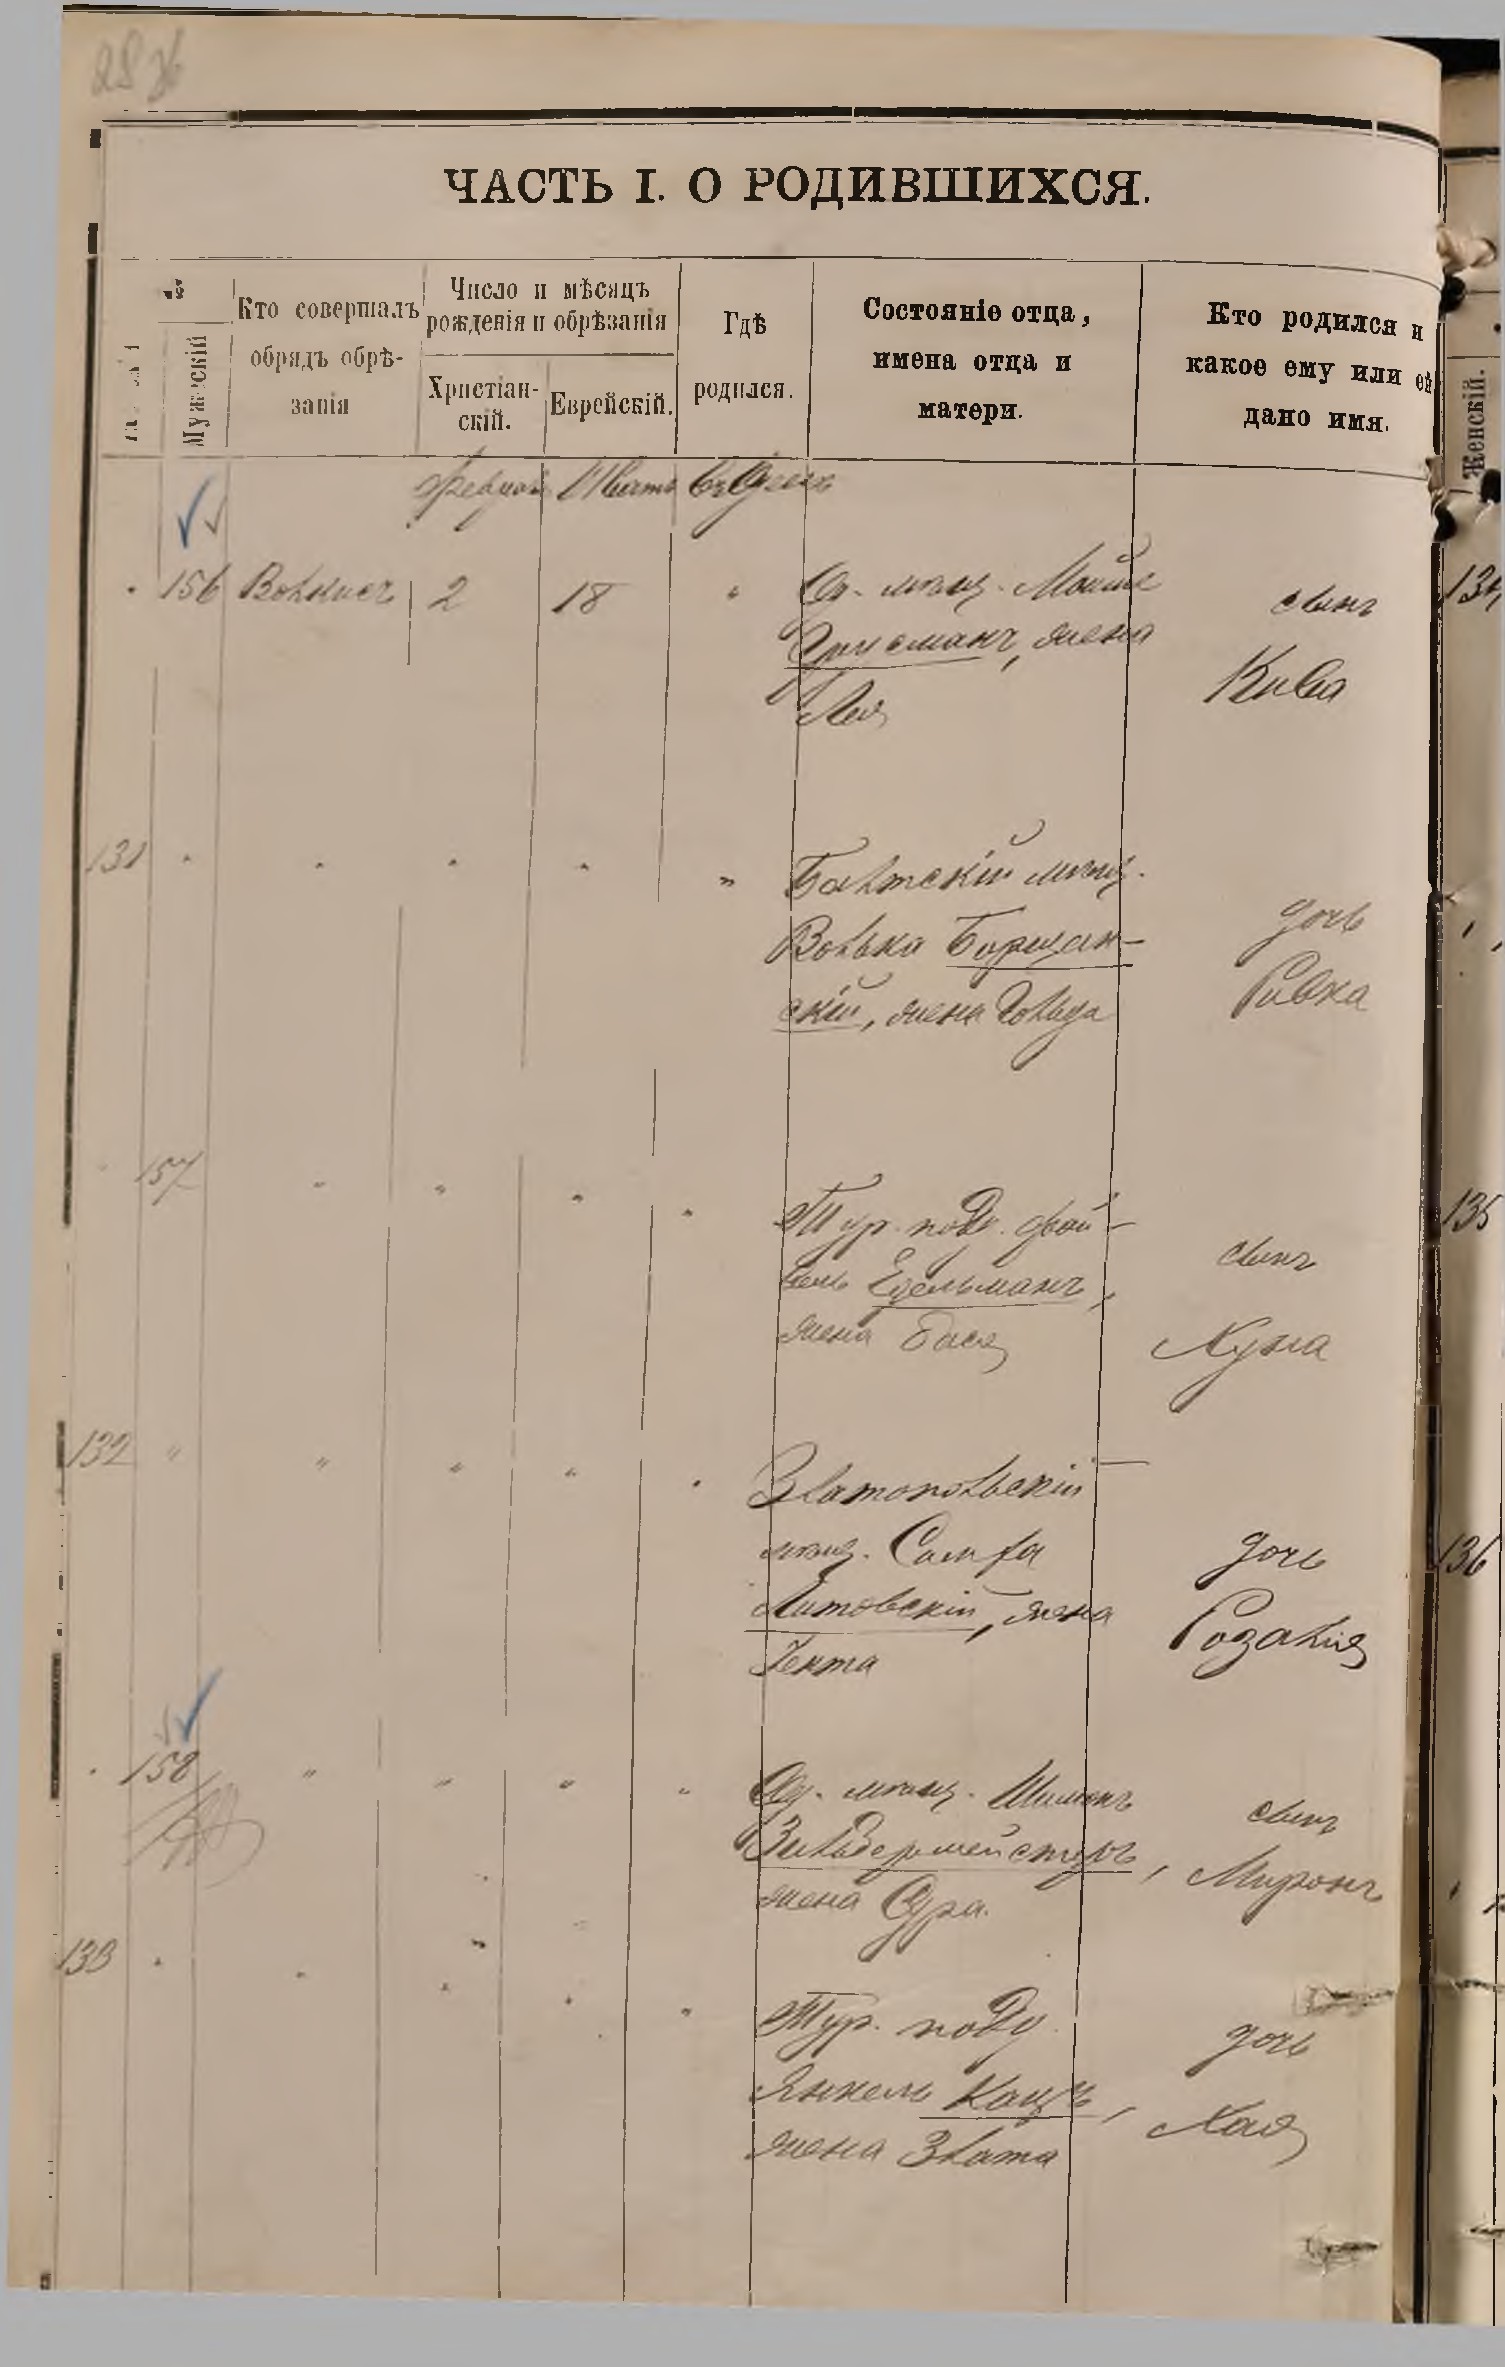 ЧАСТЬ I. О РОДИВШИХСЯ.
№
Мужескій
Кто совершалъ
обрядъ обрѣ-
занія
Число и мѣсяцъ
рожденія и обрѣзанія
Христіан-
скій.
Еврейскій.
Гдѣ
родился.
Состояніе отца,
имена отца и
матери.
Кто родился и
какое ему или ей
дано имя.
Женскій.
Шватъ
156 2 18 " Од. мѣщ. Мошке
жена
Лея
сынъ
Кива
134
131 " " " " " Балтскій мѣщ.
Волько Борщан-
скій, жена Гольда
дочь
Ривка
157 " " " " Тур. подд. Фай-
вель Едельманъ,
жена Бася
сынъ
Хуна
135
132 " " " " " Златопольскій
мѣщ.
Литовскій, жена
Гента
дочь
Розалія
136
158 " " " " Од. мѣщ. Шимонъ
Зильбермейстеръ,
жена Сура.
сынъ
Миронъ
133 " " " " " Тур. подд.
Янкель Кацъ,
жена Злата
дочь
Хая